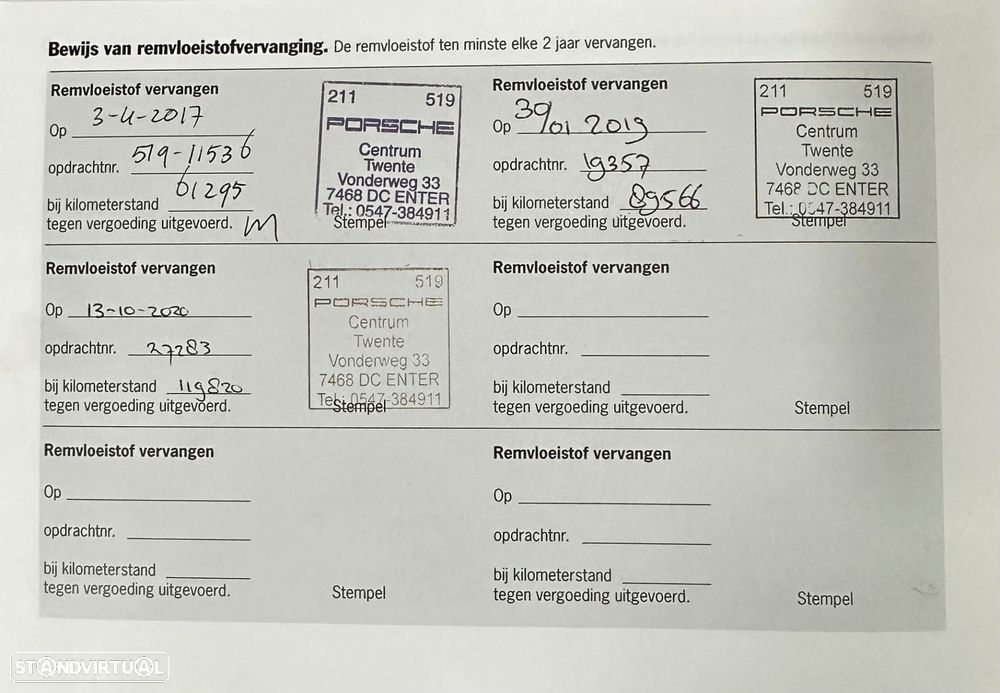 Bewijs van remvloeistofvervanging. De remvloeistof ten minste elke 2 jaar vervangen.
Remvloeistof vervangen
Op 3-4-2017
opdrachtnr. 519-11536
bij kilometerstand 61295
tegen vergoeding uitgevoerd.
211 519
PORSCHE
Centrum
Twente
Vonderweg 33
7468 DC ENTER
Tel.: 0547-384911
Stempel
Remvloeistof vervangen
Op 30/01 2019
opdrachtnr. 19357
bij kilometerstand 89566
tegen vergoeding uitgevoerd.
211 519
PORSCHE
Centrum
Twente
Vonderweg 33
7468 DC ENTER
Tel.: 0547-384911
Stempel
Remvloeistof vervangen
Op 13-10-2020
opdrachtnr. 27283
bij kilometerstand 119820
tegen vergoeding uitgevoerd.
211 519
PORSCHE
Centrum
Twente
Vonderweg 33
7468 DC ENTER
Tel.: 0547-384911
Stempel
Remvloeistof vervangen
Op
opdrachtnr.
bij kilometerstand
tegen vergoeding uitgevoerd.
Stempel
Remvloeistof vervangen
Op
opdrachtnr.
bij kilometerstand
tegen vergoeding uitgevoerd.
Stempel
Remvloeistof vervangen
Op
opdrachtnr.
bij kilometerstand
tegen vergoeding uitgevoerd.
Stempel
STANDVIRTUAL